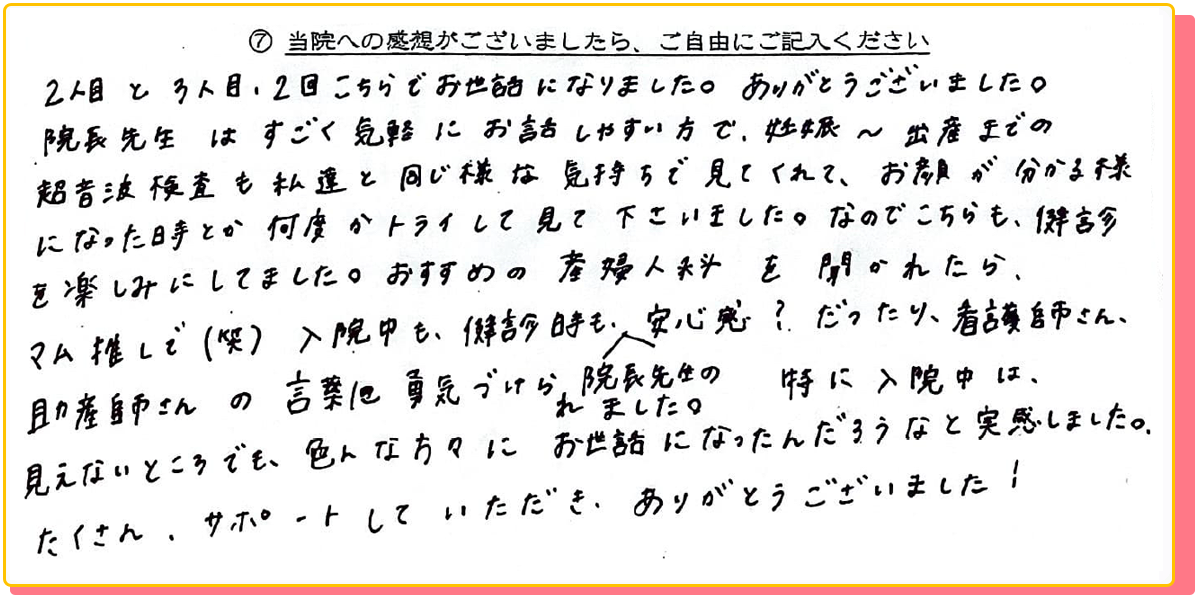 ⑦ 当院への感想がございましたら、ご自由にご記入ください
2人目と3人目、2回こちらでお世話になりました。ありがとうございました。
院長先生はすごく気軽にお話しやすい方で、妊娠〜出産までの
超音波検査も私達と同じ様な気持ちで見てくれて、お顔が分かる様
になった時とか何度かトライして見て下さいました。なのでこちらも、健診
を楽しみにしてました。おすすめの産婦人科を聞かれたら、
マム推しで(笑)入院中も、健診時も、安心感?だったり、看護師さん、
院長先生の
助産師さんの言葉に勇気づけられました。特に入院中は、
見えないところでも、色んな方々にお世話になったんだろうなと実感しました。
たくさん、サポートしていただき、ありがとうございました!